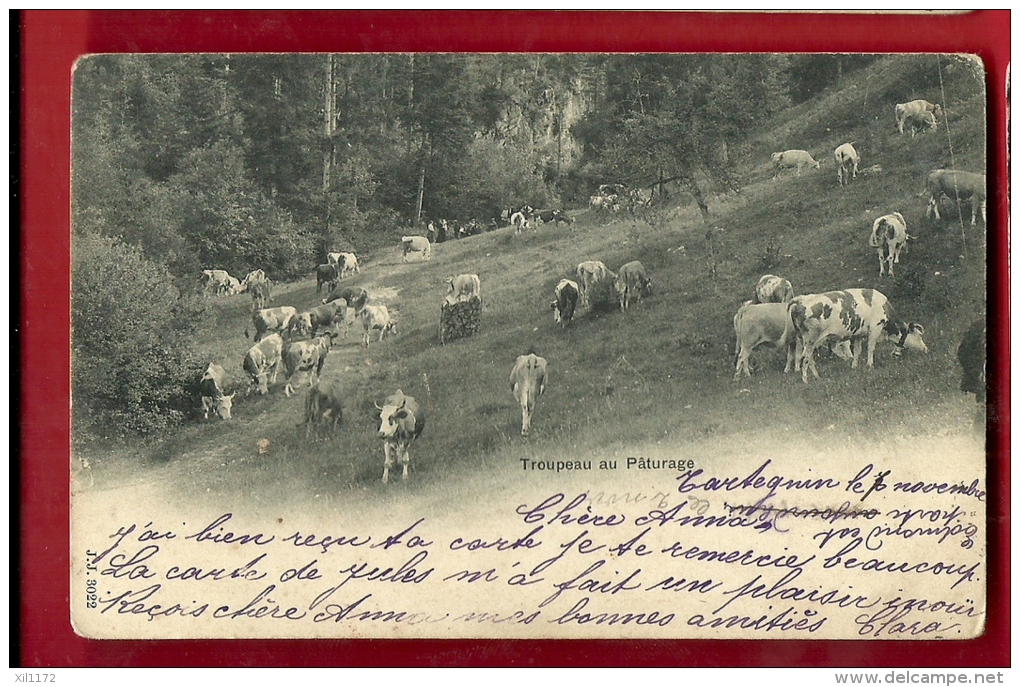 Troupeau au Pâturage
Tartegnin le 7 novembre
Chère Anna
J'ai bien reçu ta carte je te remercie beaucoup.
La carte de Jules m'a fait un plaisir inouï
Reçois chère Anna mes bonnes amitiés Clara
J.J. 3022
xil1172
delcampe.net